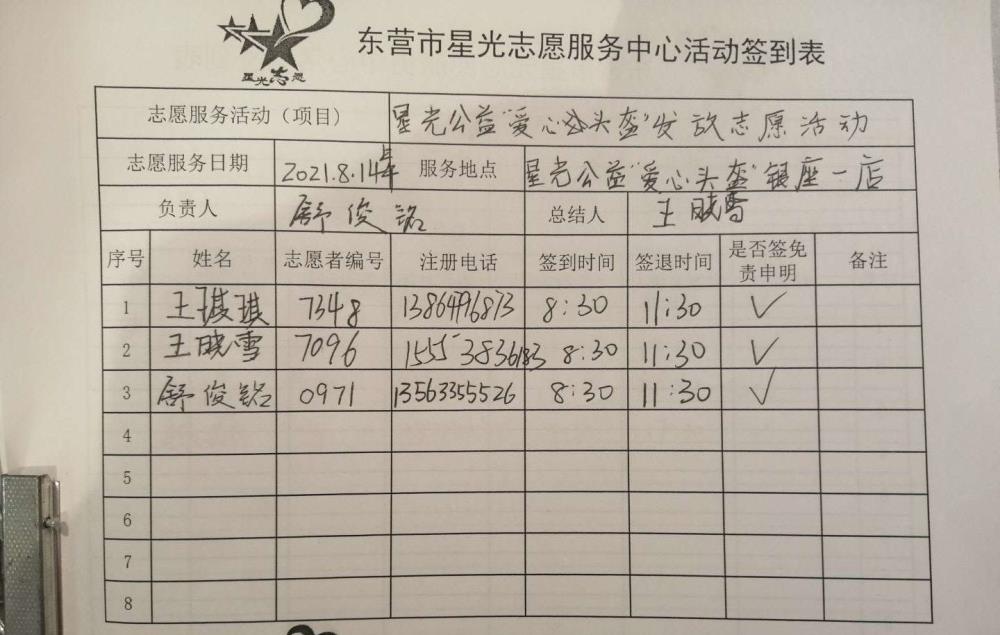 星光志愿
东营市星光志愿服务中心活动签到表
志愿服务活动（项目） 星光公益"爱心头盔"发放志愿活动
志愿服务日期 2021.8.14 服务地点 星光公益"爱心头盔"银座一店
负责人 舒俊铭 总结人 王晓雪
序号 姓名 志愿者编号 注册电话 签到时间 签退时间 是否签免责申明 备注
1 王琪琪 7348 8:30 11:30 ✓
2 王晓雪 7096 15553836183 8:30 11:30 ✓
3 舒俊铭 0971 13563355526 8:30 11:30 ✓
4
5
6
7
8